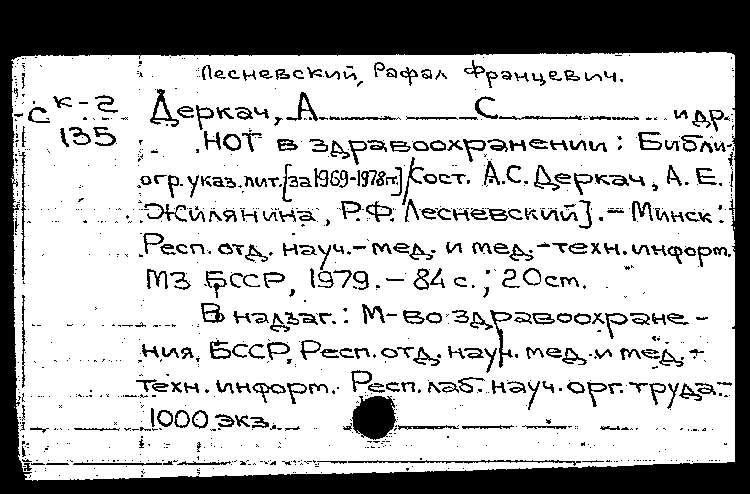 Лесневский, Рафал Францевич.
К-2 Деркач, А С и др.
С 135 НОТ в здравоохранении : Библи-
огр. указ. лит. [за 1969-1978 гг.] / Сост. А.С. Деркач, А. Е.
Жилянина, Р.Ф. Лесневский]. – Минск:
Респ. отд. науч.-мед. и мед.-техн. информ.
МЗ БССР, 1979. – 84 с. ; 20 cm.
В надзаг.: М-во здравоохране-
ния, БССР, Респ. отд. науч. мед. и мед.-
техн. информ. Респ. лаб. науч. орг. труда.-
1000 экз.